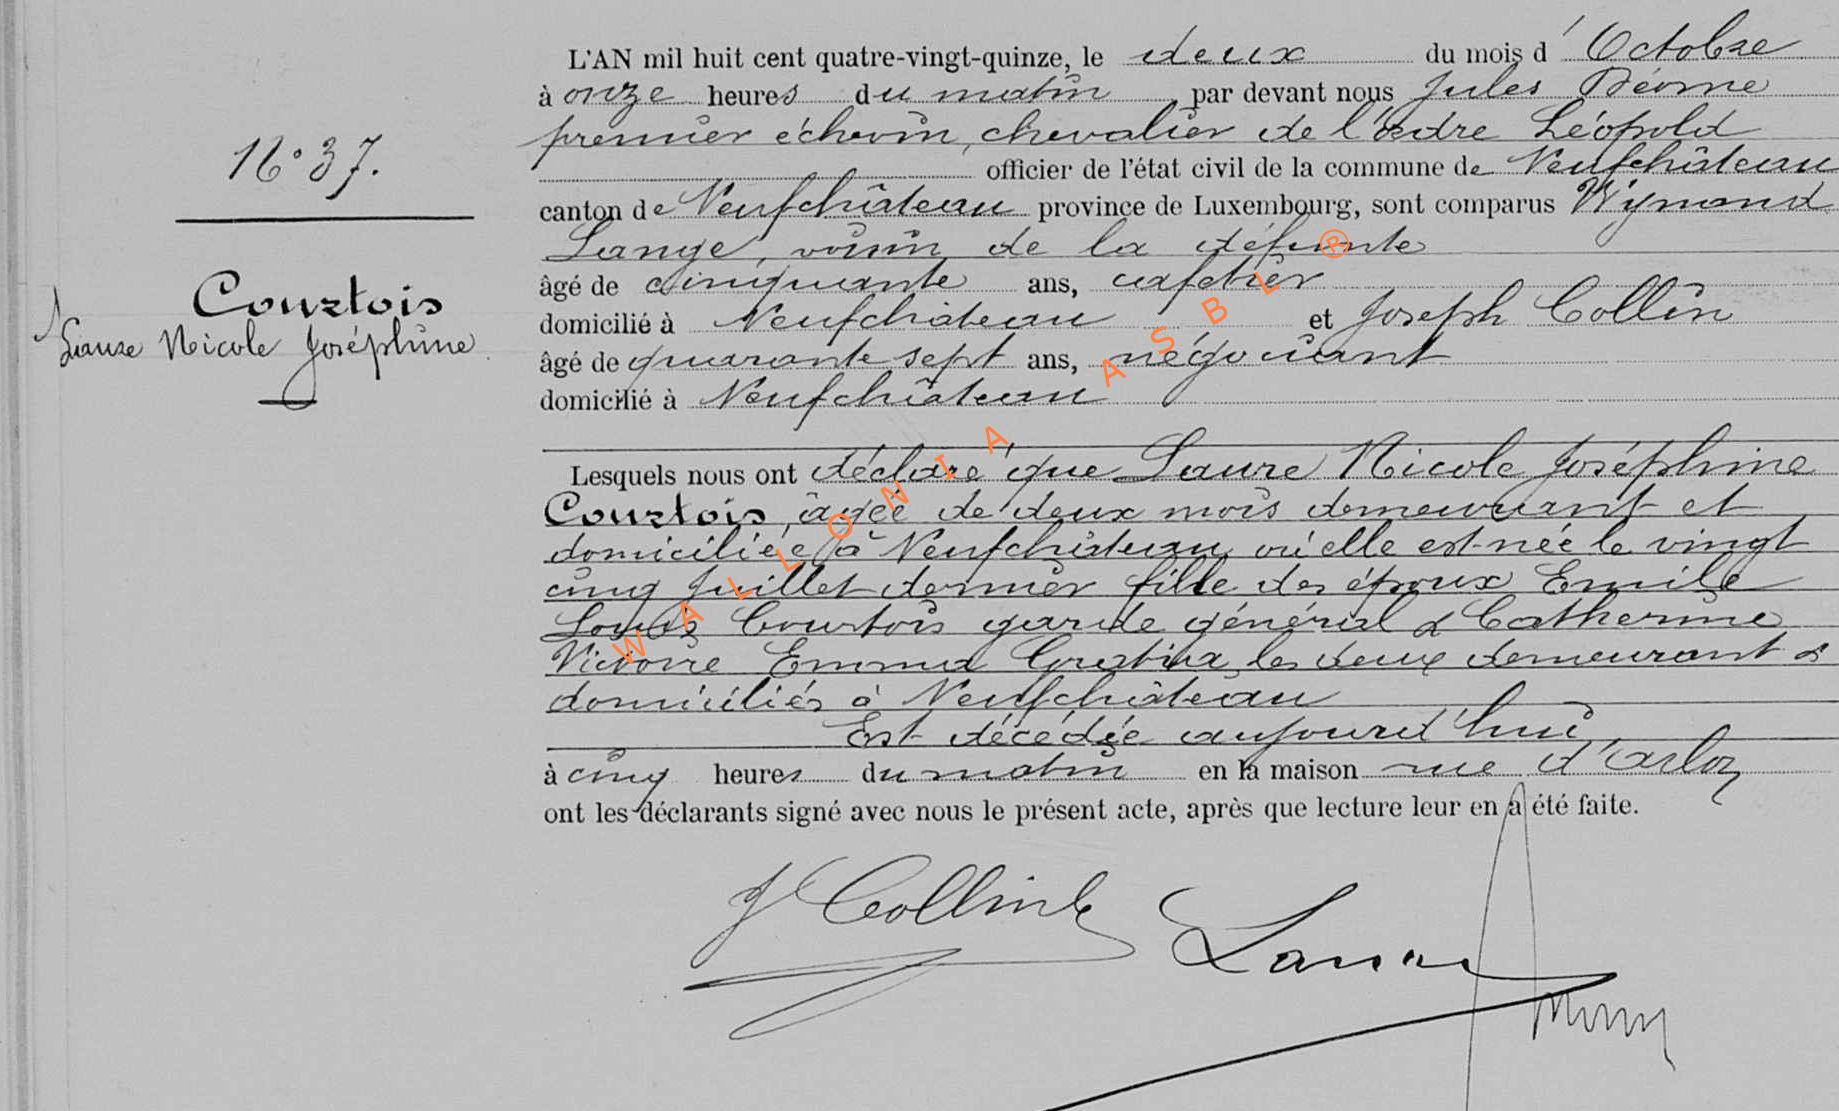 L'AN mil huit cent quatre-vingt-quinze, le deux du mois d'Octobre
à onze heures du matin par devant nous Jules
premier échevin, chevalier de l'ordre Léopold
officier de l'état civil de la commune de Neufchâteau
canton de Neufchâteau province de Luxembourg, sont comparus Wynand
Lange, voisin de la défunte
âgé de cinquante ans, cafetier
domicilié à Neufchâteau et Joseph Collin
âgé de quarante sept ans, négociant
domicilié à Neufchâteau
N° 37.
Courtois
Laure Nicole Joséphine
Lesquels nous ont déclaré que Laure Nicole Joséphine
Courtois, âgée de deux mois demeurant et
domiciliée à Neufchâteau où elle est née le vingt
cinq Juillet dernier fille des époux Emile
Louis Courtois garde général & Catherine
Victoire Emma les deux demeurant &
domiciliés à Neufchâteau
Est décédée aujourd'hui
à cinq heures du matin en la maison rue d'Arlon
ont les déclarants signé avec nous le présent acte, après que lecture leur en a été faite.
J Collin
Lange
WALLONIA ASBL ®